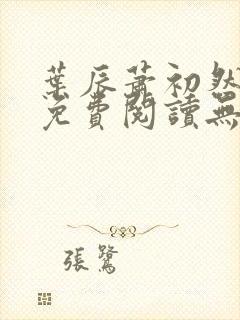 葉辰蕭初然
免費閱讀無
張鷺